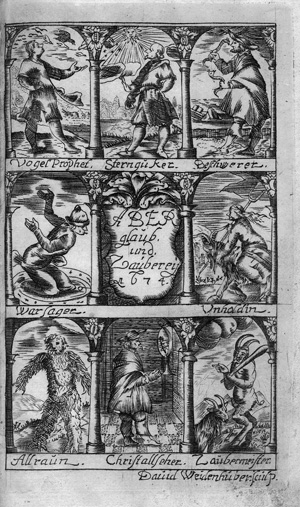 Vogel Prophet. Sterngucker. Beschwerer.
ABER
glaub.
und
Zauberey
1674.
Warsager. Unholdin.
Allraun. Christallseher. Zaubermeister
David Weidenhuber sculp.